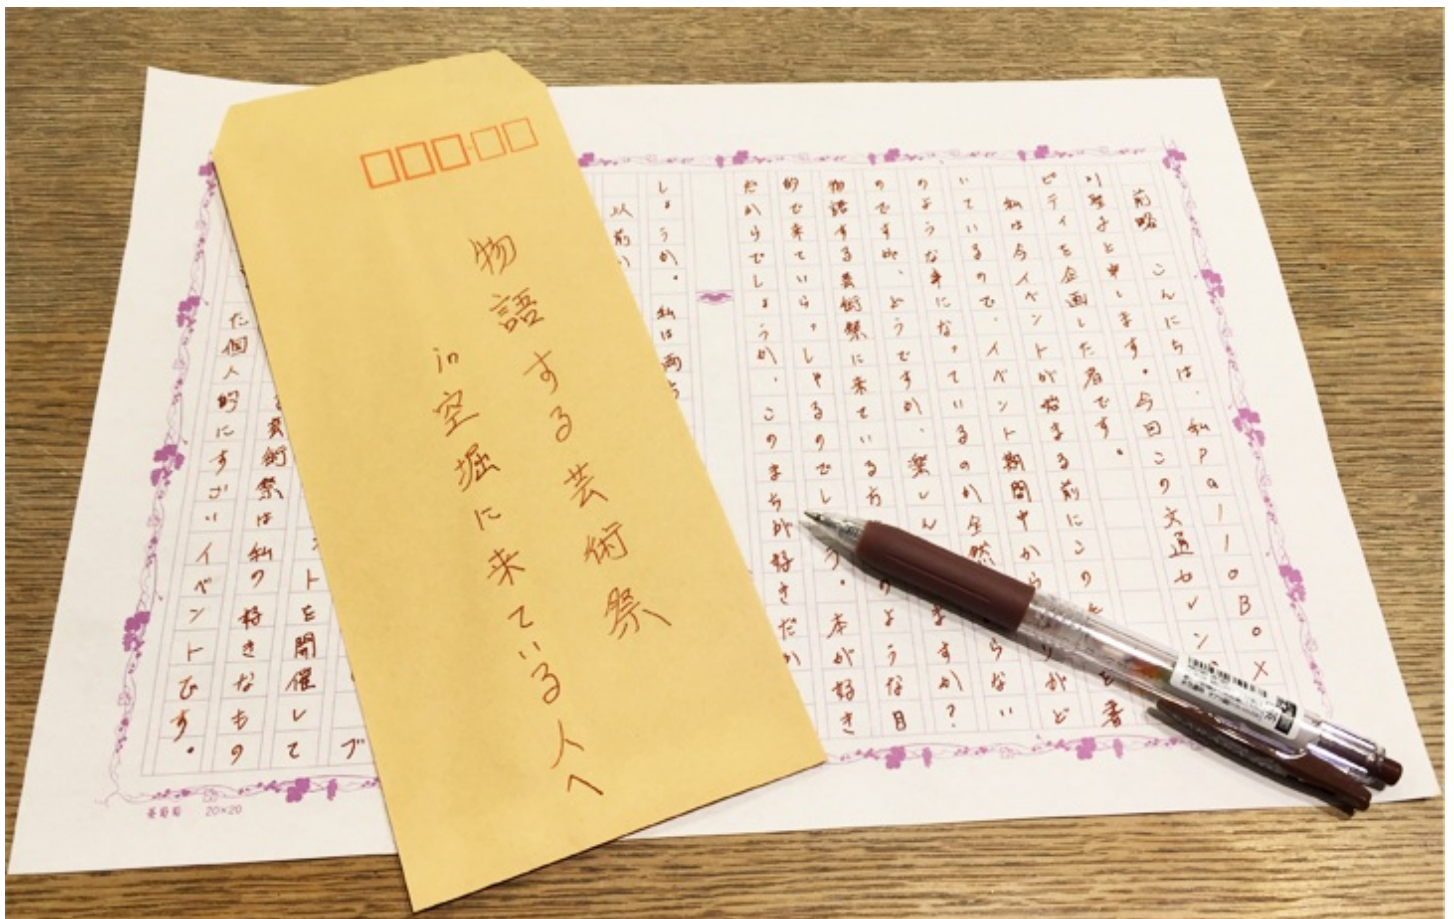 物語する芸術祭
in空堀に来ている人へ
前略 こんにちは、私Pa110Box
川聖子と申します。今回この文通セレン
ピティを企画した者です。
私は今イベントが始まる前にこの
いているので、イベント期間中から
のような事になっているのか全然 らない
のですが、どうですか、楽しん ますか?
物語する芸術祭に来ている方 のような目
的で来ていらっしゃるのでし う。本が好き
だからでしょうか、このまちが好きだか
しょうか。私は
以前
ブ
ントを開催して
芸術祭は私の好きなもの
た個人的にすごいイベントです。
葡萄 20×20